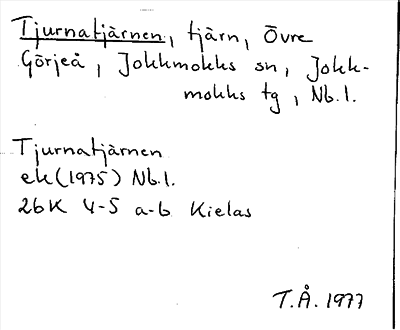 Tjurnatjärnen, tjärn, Övre
Görjeå, Jokkmokks sn, Jokk-
mokks tg, Nb.l.
Tjurnatjärnen
ek (1975) Nb.l.
26K 4-5 a-b Kielas
T.Å. 1977